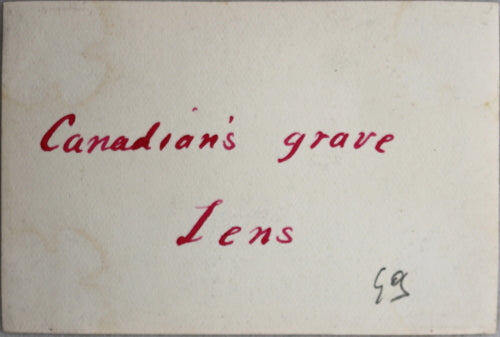 Canadian's grave
Lens